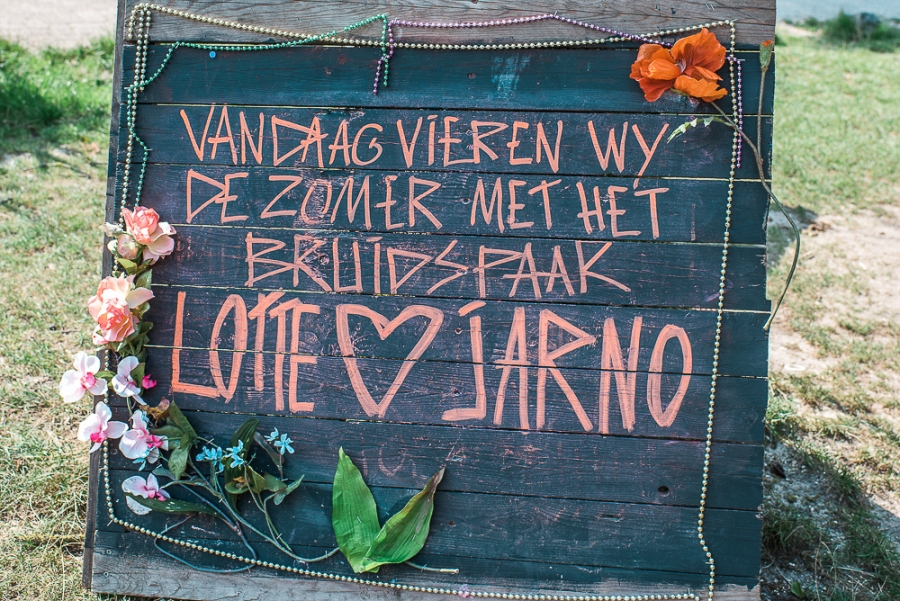 VANDAAG VIEREN WY
DE ZOMER MET HET
BRUIDSPAAK
LOTTE ♡ JARNO